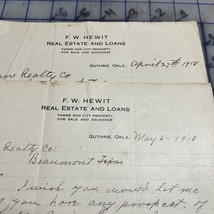 F. W. HEWIT
REAL ESTATE AND LOANS
FARMS AND CITY PROPERTY
FOR SALE AND EXCHANGE
GUTHRIE, OKLA. April 27th 1918
Realty Co
F. W. HEWIT
REAL ESTATE AND LOANS
FARMS AND CITY PROPERTY
FOR SALE AND EXCHANGE
GUTHRIE, OKLA. May 6 - 1918
Realty Co.
Beaumont Texas
I wish you would let me
you have any prospect. If